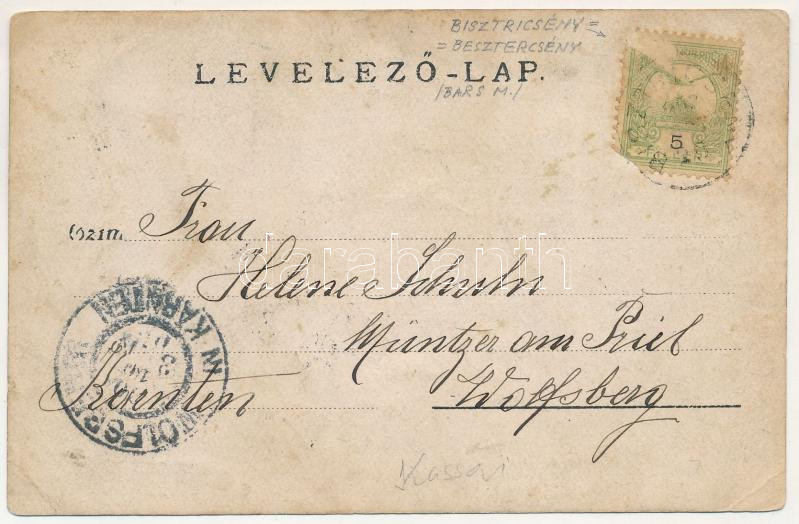 BISZTRICSÉNY =
= BESZTERCSÉNY
LEVELEZŐ-LAP.
/BARS M./
5
Czim
Frau
Helene Schuln
Müntzer am Priel
Wolfsberg
Kaernten
WOLFSBERG IN KÄRNTEN
darabanth